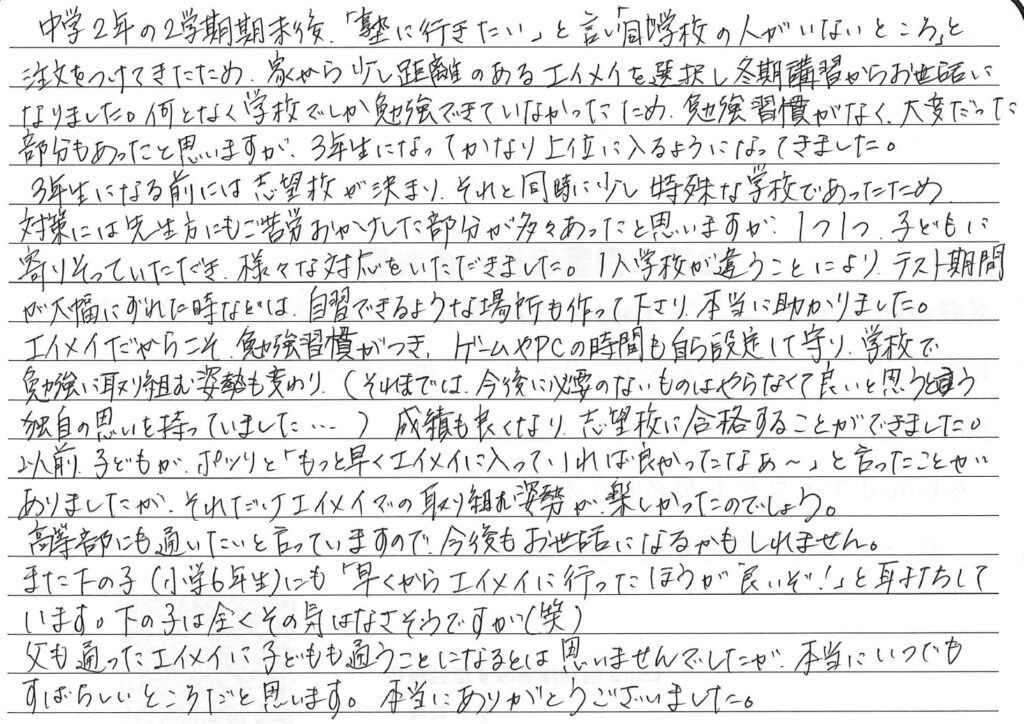 中学2年の2学期期末後、「塾に行きたい」と言い「同学校の人がいないところ」と
注文をつけてきたため、家から少し距離のあるエイメイを選択し冬期講習からお世話に
なりました。何となく学校でしか勉強できていなかったため、勉強習慣がなく、大変だった
部分もあったと思いますが、3年生になってかなり上位に入るようになってきました。
3年生になる前には志望校が決まり、それと同時に少し特殊な学校であったため
対策には先生方にもご苦労おかけした部分が多々あったと思いますが、1つ1つ、子どもに
寄りそっていただき、様々な対応をいただきました。1人学校が違うことにより、テスト期間
が大幅にずれた時などは、自習できるような場所も作って下さり、本当に助かりました。
エイメイだからこそ、勉強習慣がつき、ゲームやPCの時間も自ら設定して守り、学校で
勉強に取り組む姿勢も変わり、(それまでは、今後に必要のないものはやらなくて良いと思うと言う
独自の思いを持っていました…)成績も良くなり、志望校に合格することができました。
以前、子どもが、ポツリと「もっと早くエイメイに入っていれば良かったなぁ〜」と言ったことが
ありましたが、それだけエイメイでの取り組む姿勢が、楽しかったのでしょう。
高等部にも通いたいと言っていますので、今後もお世話になるかもしれません。
また下の子(小学6年生)にも「早くからエイメイに行ったほうが良いぞ!」と耳打ちして
います。下の子は全くその気はなさそうですが(笑)
父も通ったエイメイに子どもも通うことになるとは思いませんでしたが、本当にいつでも
すばらしいところだと思います。本当にありがとうございました。